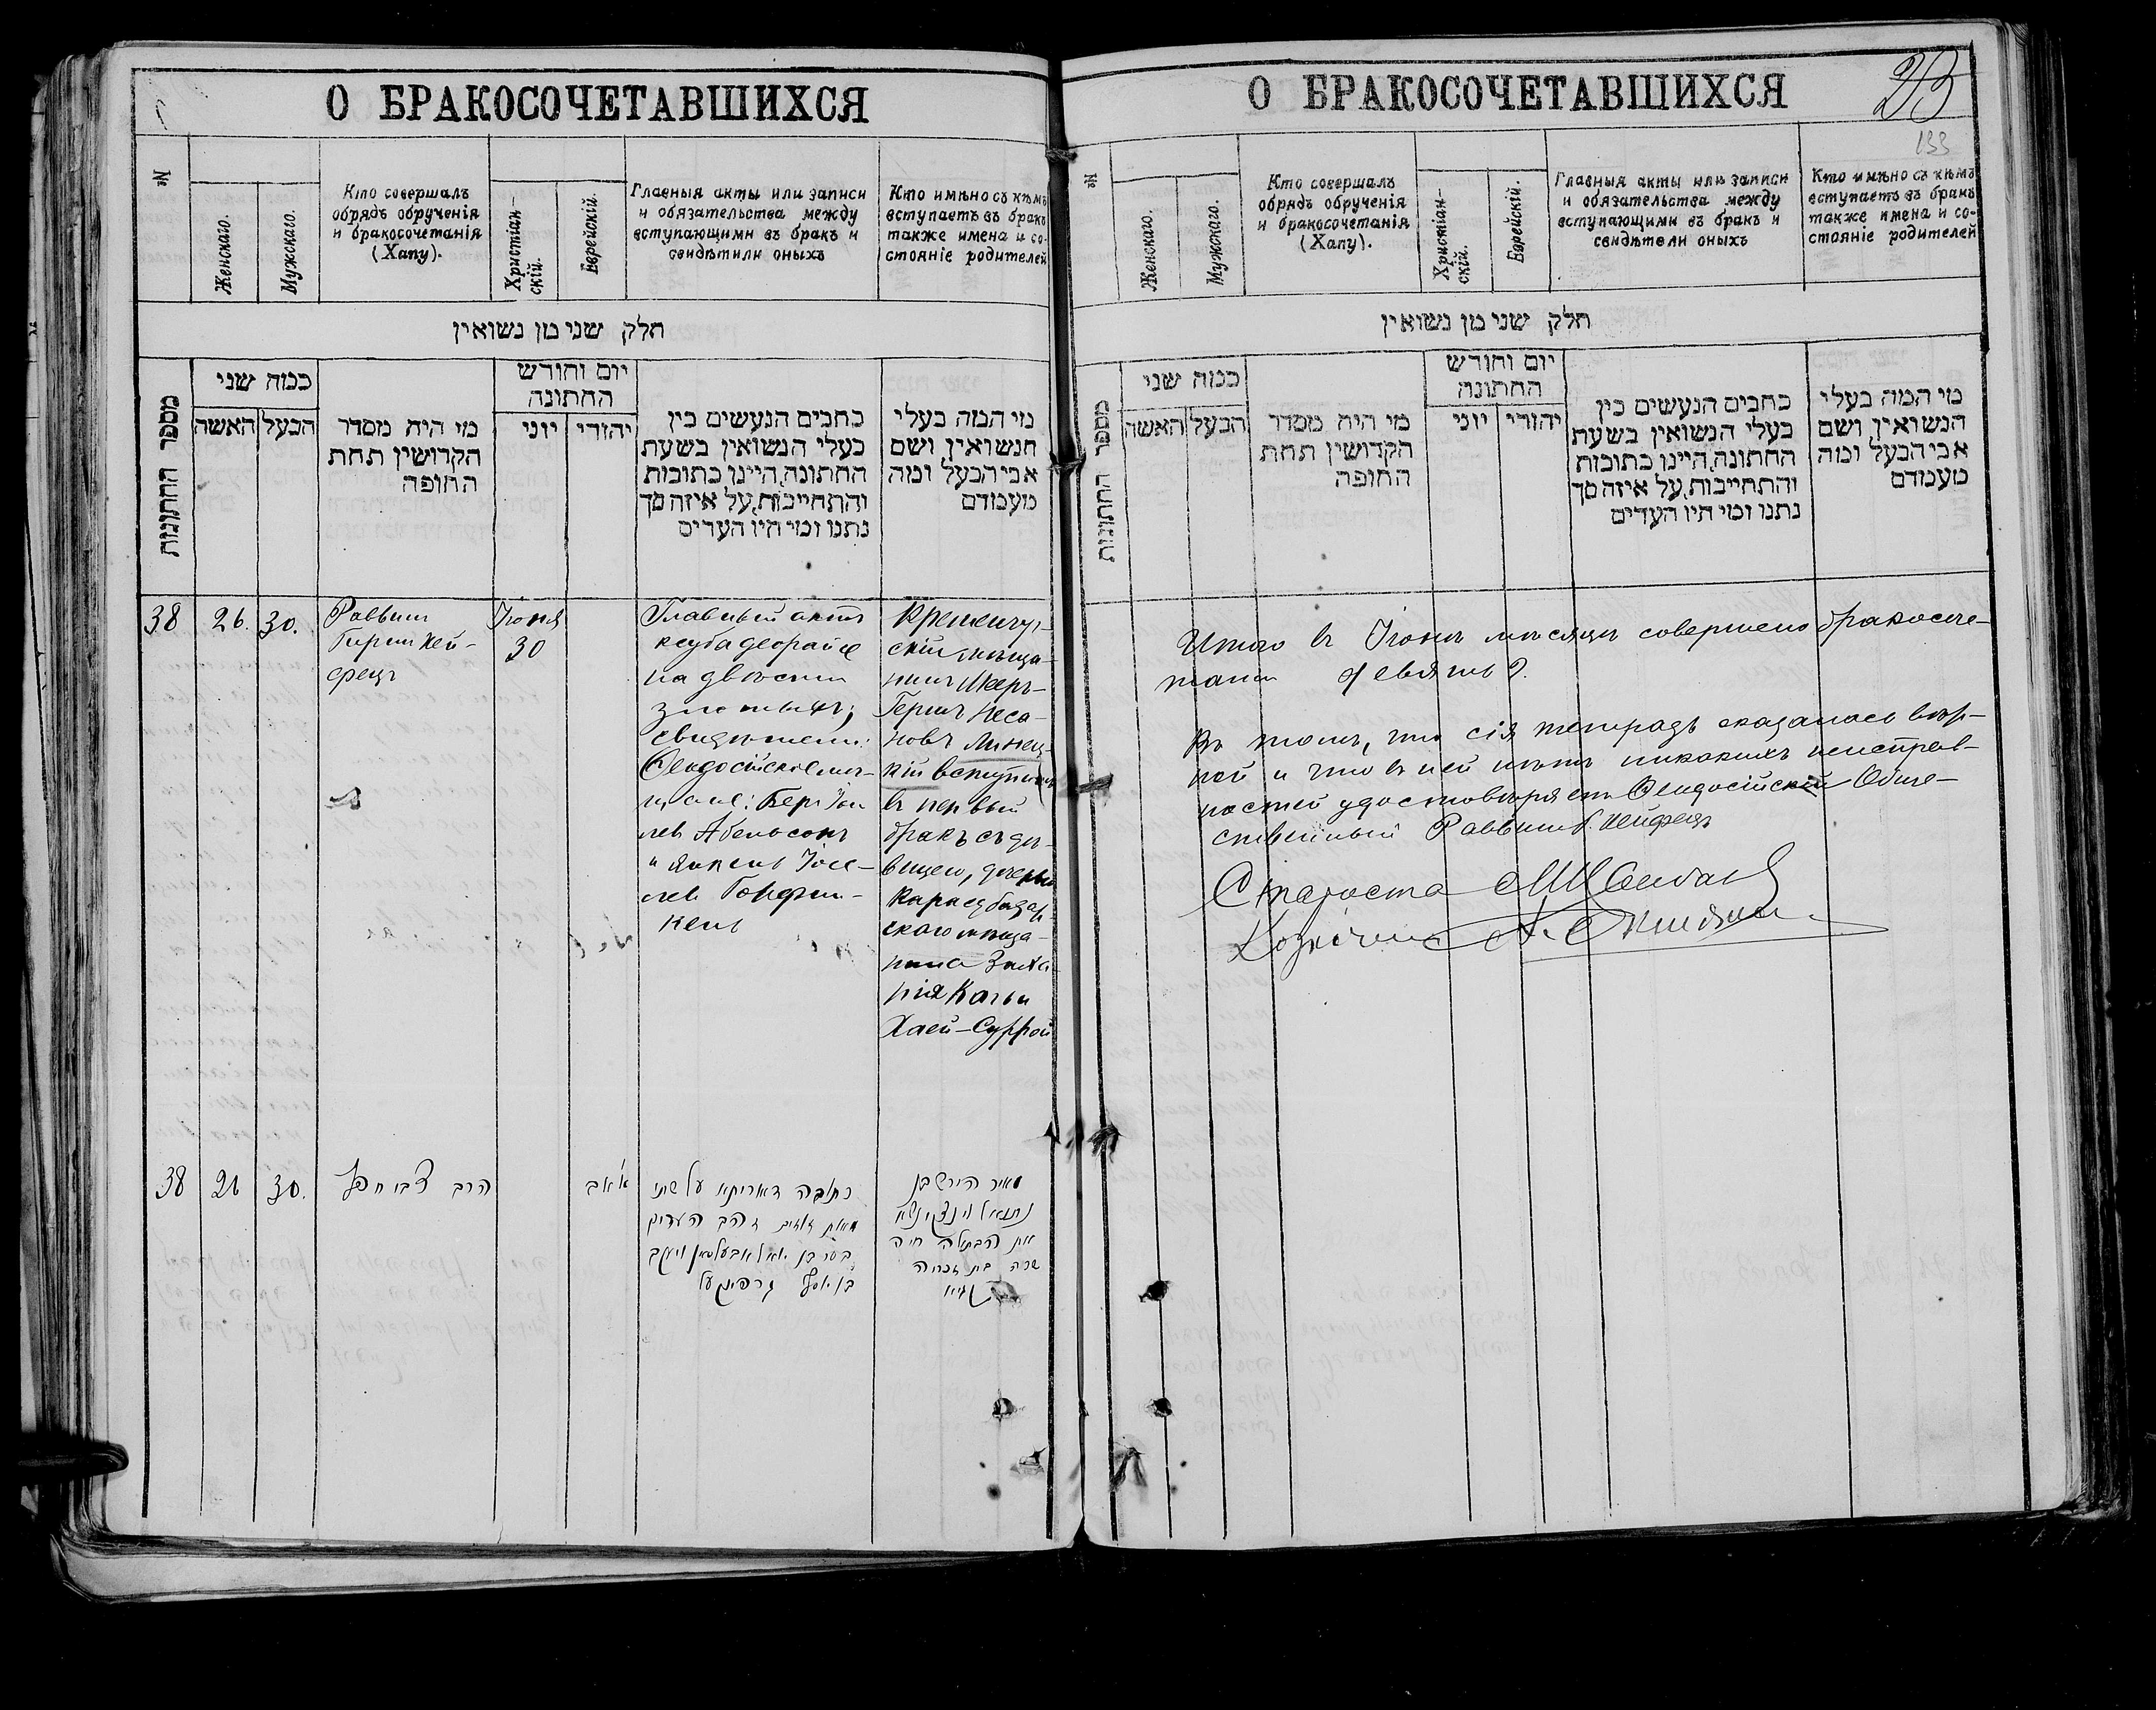 О БРАКОСОЧЕТАВШИХСЯ
№
Женскаго.
Мужскаго.
Кто совершалъ
обрядъ обрученія
и бракосочетанія
(Хапу).
Христіан-
скій.
Еврейскій.
Главныя акты или записи
и обязательства между
вступающими въ бракъ и
свидѣтили оныхъ
Кто имѣно съ кѣмъ
вступаетъ въ бракъ
также имена и со-
стояніе родителей
חלק שני מן נשואין
מספר החתונות
ככוה שני
האשה
הבעל
מי היה מסדר
הקדושין תחת
החופה
יום וחודש
החתונה
יוני
יהודי
כתבים הנעשים בין
בעלי הנשואין בשעת
החתונה, היינו כתובות
והתחייבות, על איזה סך
נתנו ומי היו העדים
מי המה בעלי
הנשואין ושם
אבי הבעל ומה
מעמדם
38
26.
30.
Раввин
Гирш Хей-
фецъ
Іюня
30
Главный актъ
кеуба деорайсе
на двѣсти
злотыхъ;
свидѣтели:
Ѳеодосійскіе мѣ-
щане: Бер Іо-
лев Абельсонъ
и Янкель Іосе-
лев Горфин-
кель
Кременчуг-
скій мѣща-
нинъ Меер-
Гершъ Неса-
новъ Линец-
кій вступилъ
въ первый
бракъ съ дѣ-
вицею, дочерью
Карасубазар-
скаго мѣща-
нина Заха-
рія Кагьи
Хаей-Суррой
38
26
30.
הרב צבי חפץ
א' אב
כתובה דאריתא על שתי
מאות זוזים זהב העדים
בער בן יואל אבעלסאן ויעקב
בן יוסף גרפינקעל
מאיר הירש בן
נתנאל לינצקי נשא
את הבתולה חיה
שרה בת זכריה
О БРАКОСОЧЕТАВШИХСЯ
23
133
№
Женскаго.
Мужскаго.
Кто совершалъ
обрядъ обрученія
и бракосочетанія
(Хапу).
Христіан-
скій.
Еврейскій.
Главныя акты или записи
и обязательства между
вступающими въ бракъ и
свидѣтели оныхъ
Кто имѣно съ кѣмъ
вступаетъ въ бракъ
также имена и со-
стояніе родителей
חלק שני מן נשואין
מספר החתונות
ככוה שני
האשה
הבעל
מי היה מסדר
הקדושין תחת
החופה
יום וחודש
החתונה
יוני
יהודי
כתבים הנעשים בין
בעלי הנשואין בשעת
החתונה, היינו כתובות
והתחייבות, על איזה סך
נתנו ומי היו העדים
מי המה בעלי
הנשואין ושם
אבי הבעל ומה
מעמדם
Итого въ Іюнѣ мѣсяцѣ совершено бракосоче-
таній девять 9.
Въ томъ, что сія тетрадь оказалась вѣр-
ной и что въ ней нѣтъ никакихъ неисправ-
ностей удостовѣряетъ Ѳеодосійскій Обще-
ственный Раввинъ Г. Хейфецъ
Староста